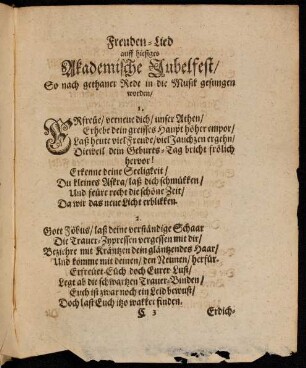 Freuden-Lied
auff hiesiges
Akademische Jubelfest/
So nach gethaner Rede in die Musik gesungen
worden/
1.
ERfreüe/ verneue dich/ unser Athen/
Erhebe dein greisses Haupt höher empor/
Laß heute viel Freude/ viel Jauchzen ergehn/
Dieweil dein Geburts-Tag bricht frölich
hervor!
Erkenne deine Seeligkeit/
Du kleines Askra/ laß dich schmükken/
Und feüre recht die schöne Zeit/
Da wir das neüe Licht erblikken.
2.
Gott Föbus/ laß deine verständige Schaar
Die Trauer-Zypressen vergessen mit dir/
Bezihre mit Kräntzen dein gläntzendes Haar/
Und komme mit deinen/ den Neunen/ herfür.
Erfreüet Eüch doch Eurer Lust/
Legt ab die schwartzen Trauer-Binden/
Euch ist zwar noch ein Leid bewust/
Doch last Euch itzo wakker finden.
C 3 Erdich-